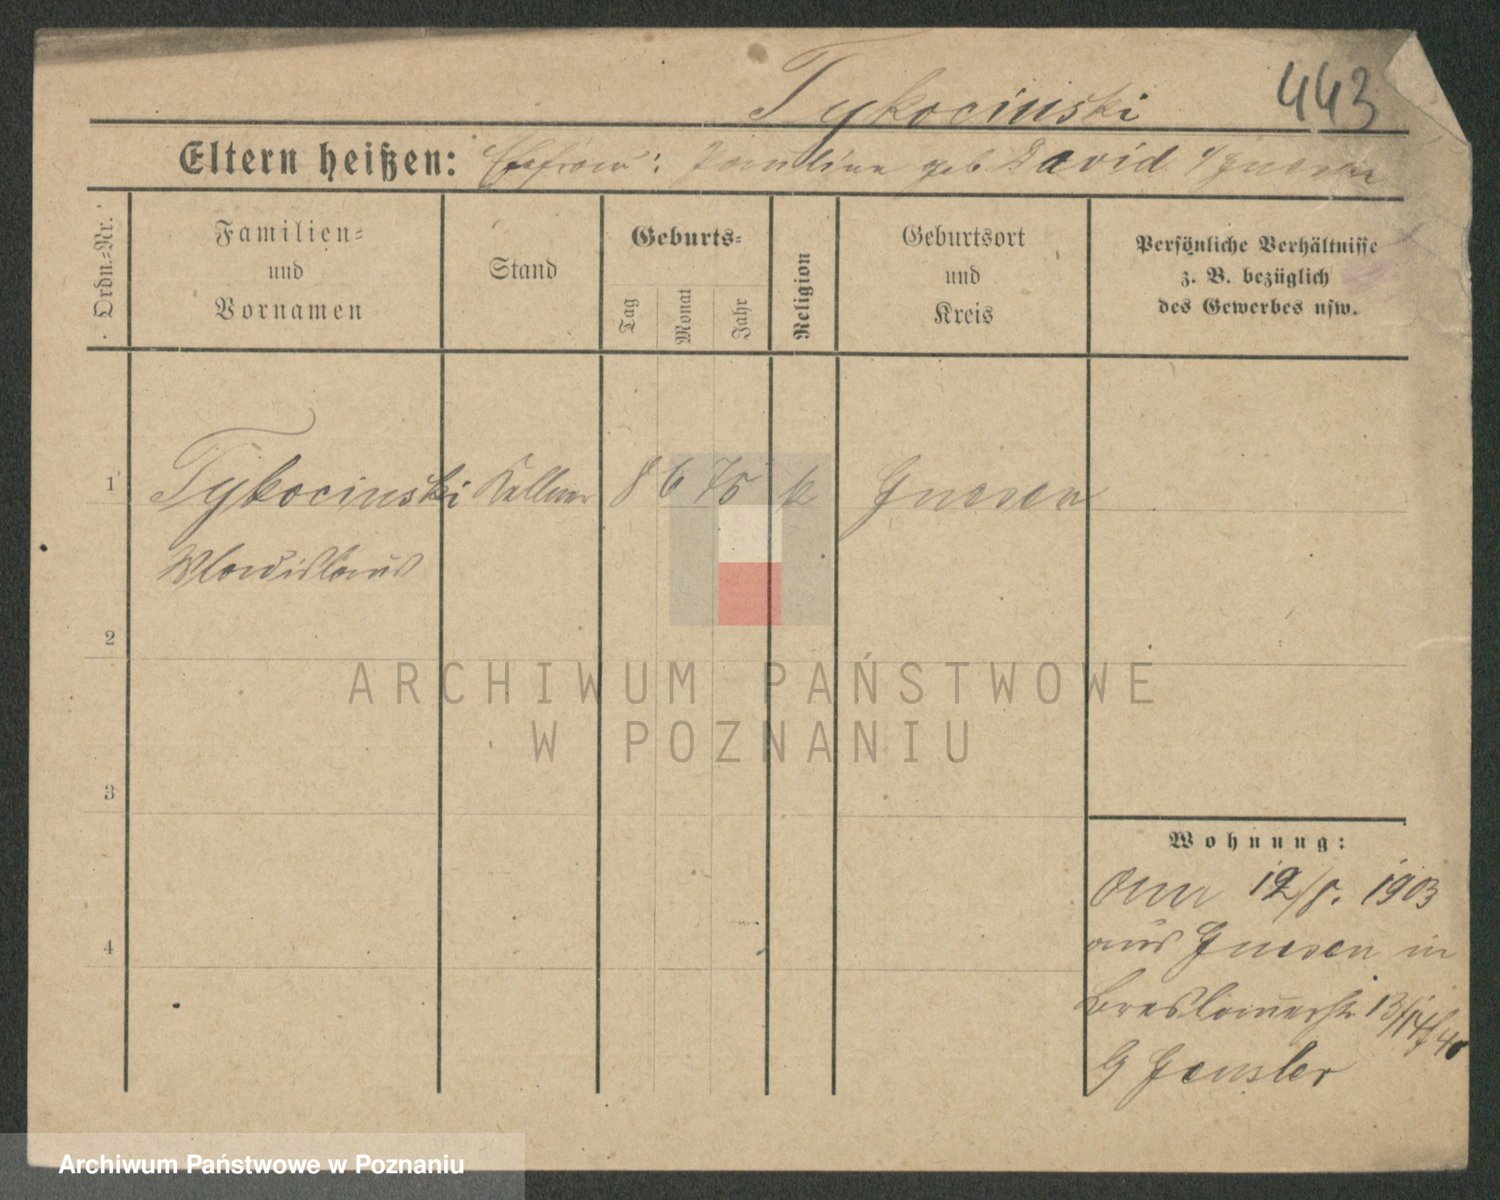 Tykocinski 443
Eltern heißen: Ehefrau: Paulina geb David
Ordn.=Nr.
Familien=
und
Vornamen
Stand
Geburts=
Tag
Monat
Jahr
Religion
Geburtsort
und
Kreis
Persönliche Verhältnisse
z. B. bezüglich
des Gewerbes usw.
1 Tykocinski Kellner 8 6 75 k Gnesen
Wladislaus
2
ARCHIWUM PAŃSTWOWE
W POZNANIU
3
Wohnung:
Am 12/8. 1903
4
aus Gnesen in
Breslauerstr 13/14
G Gensler
Archiwum Państwowe w Poznaniu